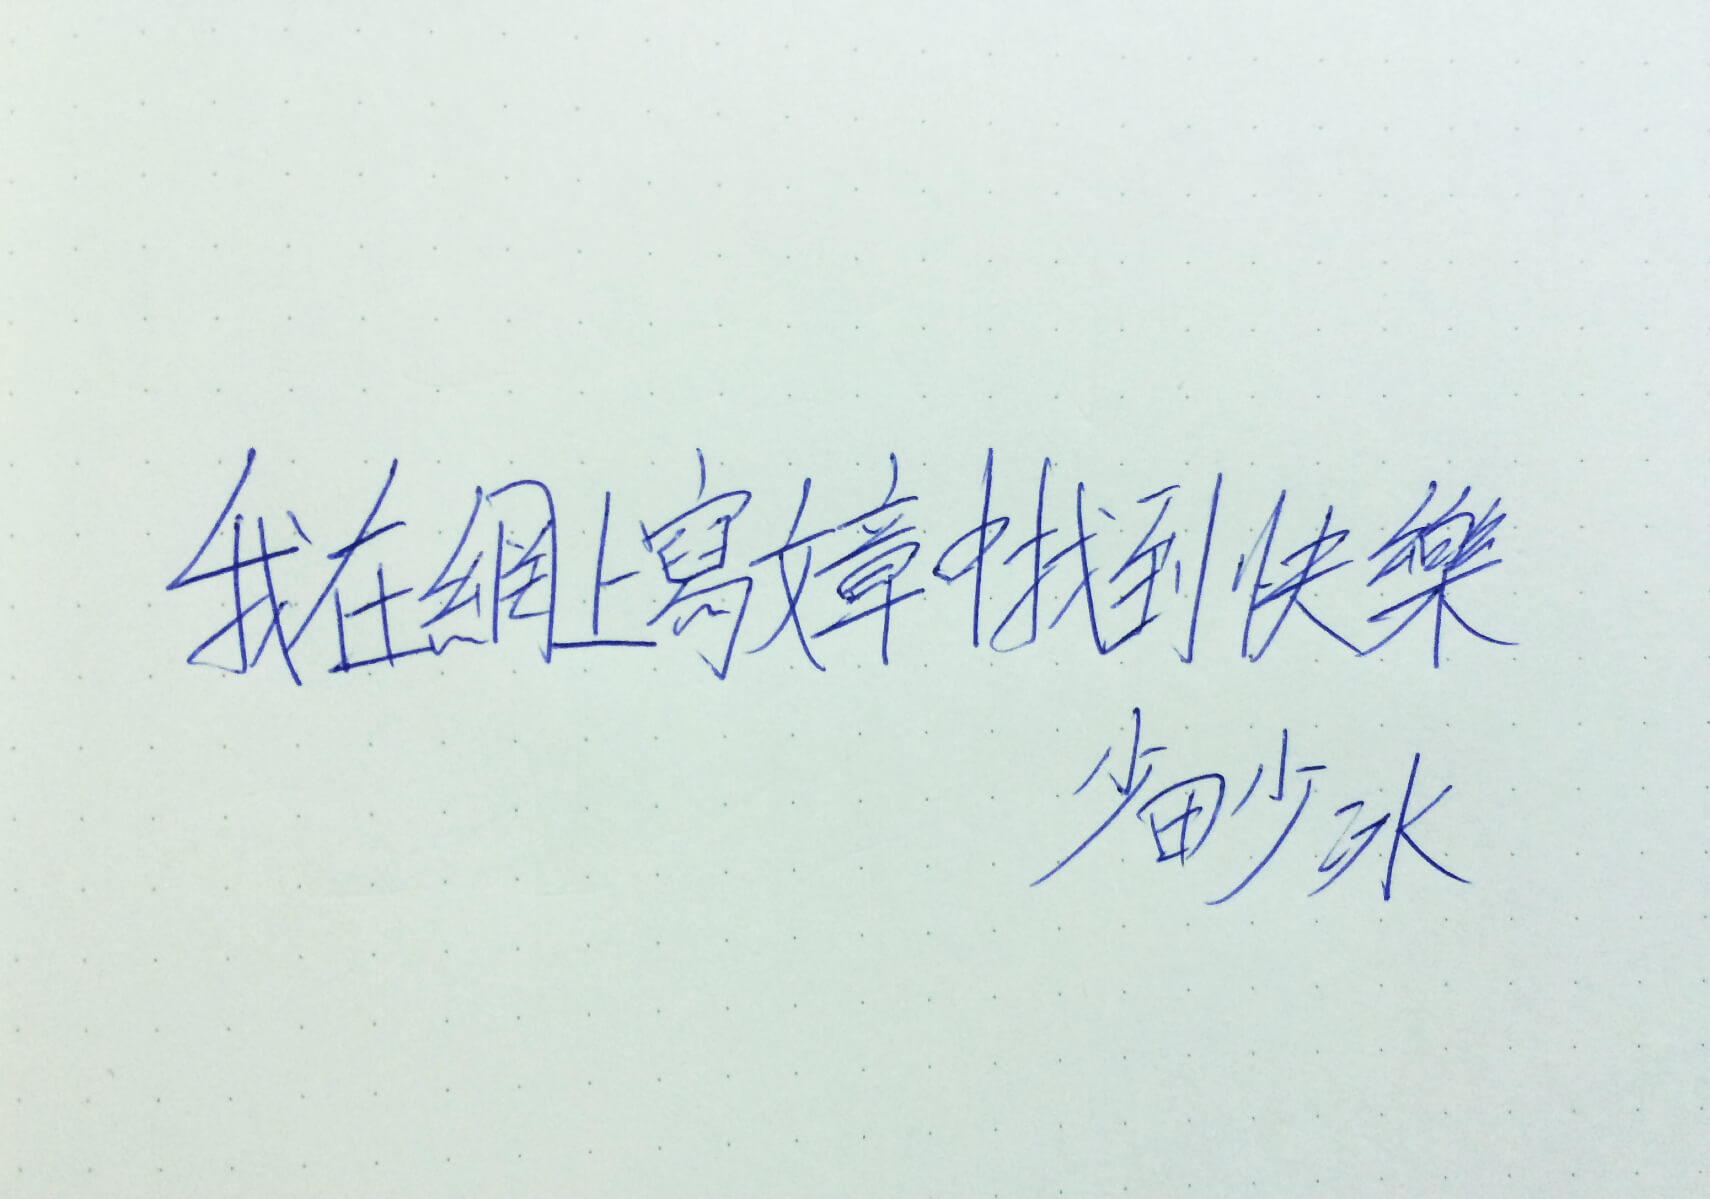 我在網上寫文章中找到快樂
少田少冰